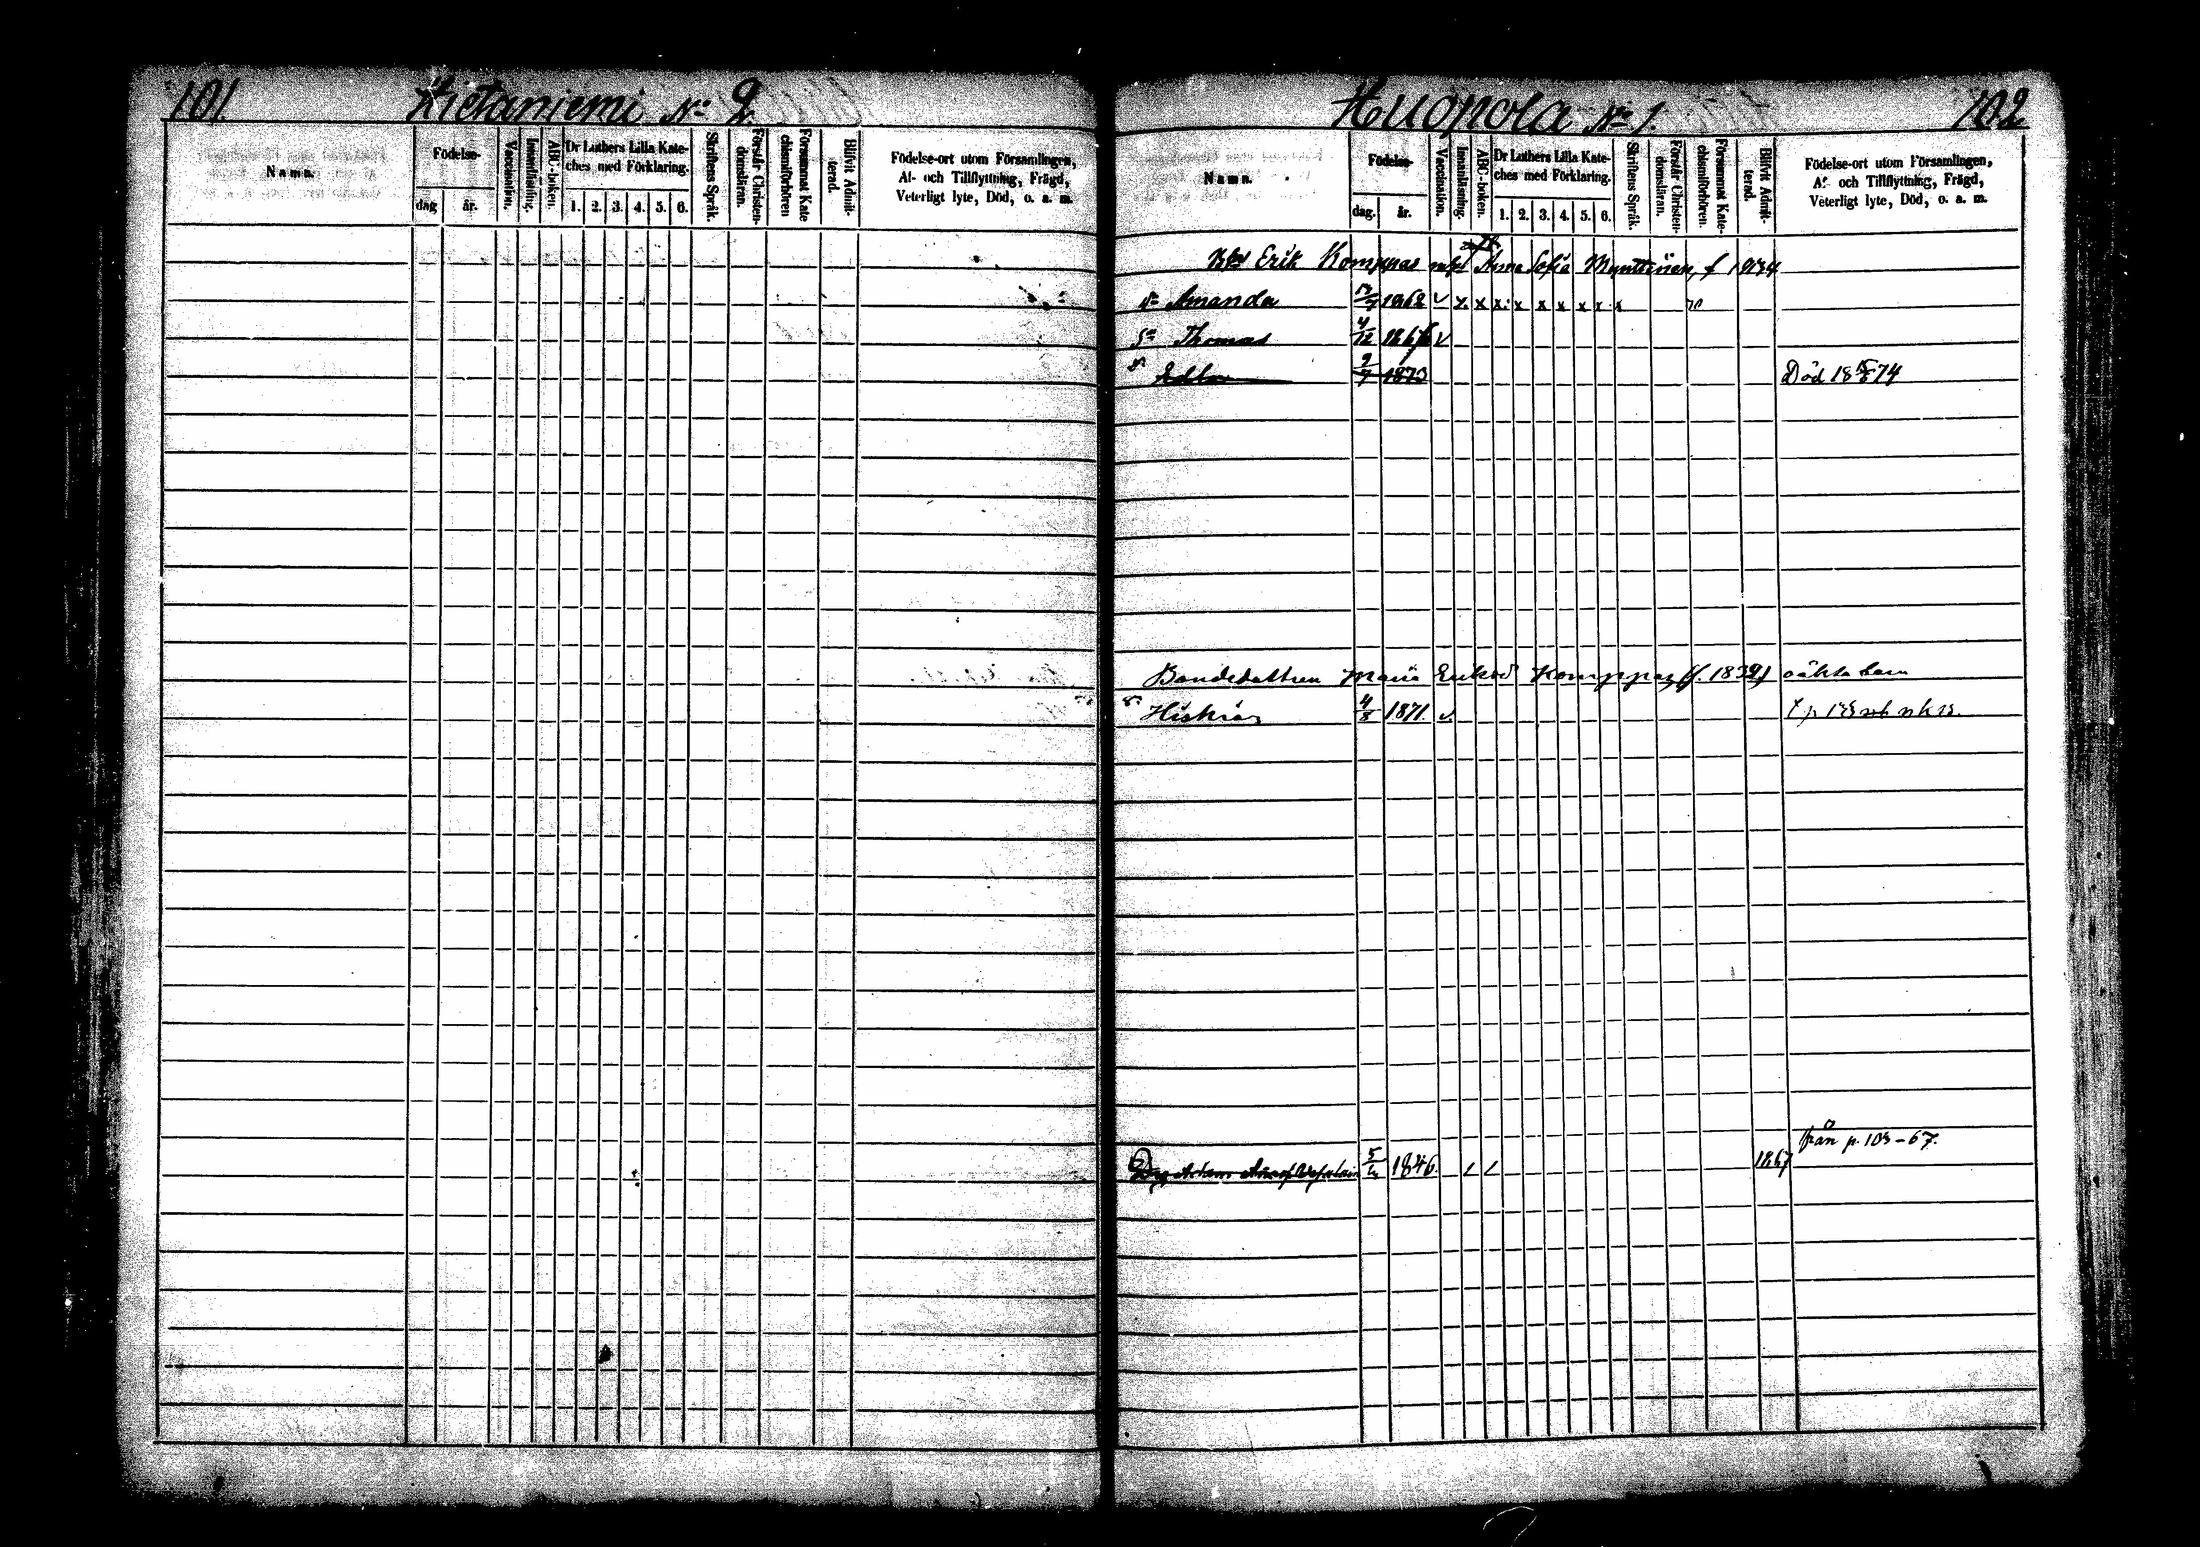 101. Hietaniemi No 2
Namn.
Födelse-
dag
år.
Vaccination.
Innanläsning.
ABC-boken.
Dr Luthers Lilla Kate-
ches med Förklaring.
1. 2. 3. 4. 5. 6.
Skriftens Språk.
Förstår Christen-
domsläran.
Försummat Kate
chismiförhören
Blifvit Admit-
terad.
Födelse-ort utom Församlingen,
Af- och Tillflyttning, Frägd,
Veterligt lyte, Död, o. a. m.
Huopola No 1. 102
Namn.
Födelse-
dag.
år.
Vaccination.
Innanläsning.
ABC-boken.
Dr Luthers Lilla Kate-
ches med Förklaring.
1. 2. 3. 4. 5. 6.
Skriftens Språk.
Förstår Christen-
domsläran.
Försummat Kate-
chismiförhören.
Blifvit Admit-
terad.
Födelse-ort utom Församlingen,
Af- och Tillflyttning, Frägd,
Veterligt lyte, Död, o. a. m.
Erik Komppas Anna Sofia Mynttinen, f 1834
Amanda 1862 x x x x x x x x
Sn Thomas 4/12 186
Edla 2/7 1873 Död 18 74
Bondedottren Maria Eriksd Komppas (f. 183 ) oäkta barn
Hiskias 4/8 1871.
från p. 103-67.
5/6 1846. 1867